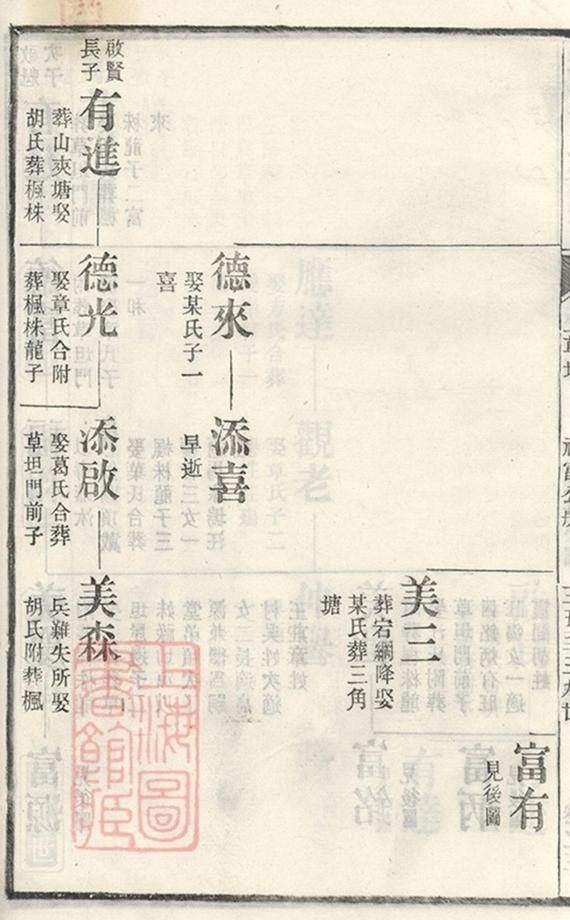 富有
見後圖
美三
葬宕網降娶
某氏葬三角
塘
德來
娶某氏子一
喜
添喜
早逝
啟賢
長子
有進
葬山夾塘娶
胡氏葬楓株
德光
娶章氏合附
葬楓株龍子
添啟
娶葛氏合葬
草坦門前子
美森
兵難失所娶
胡氏附葬楓
上海圖
書館藏